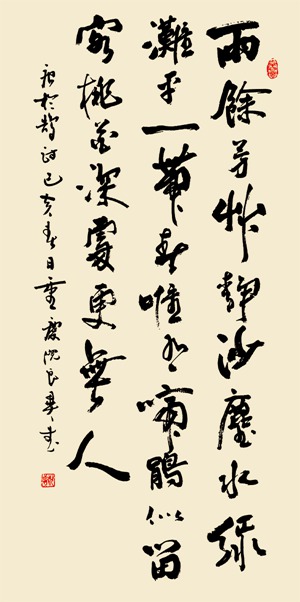 雨餘芳艸靜沙塵水綠
灘平一帶春唯有啼鵑似留
客桃花深處更無人
唐於鵠詩己亥春日重慶沈良書